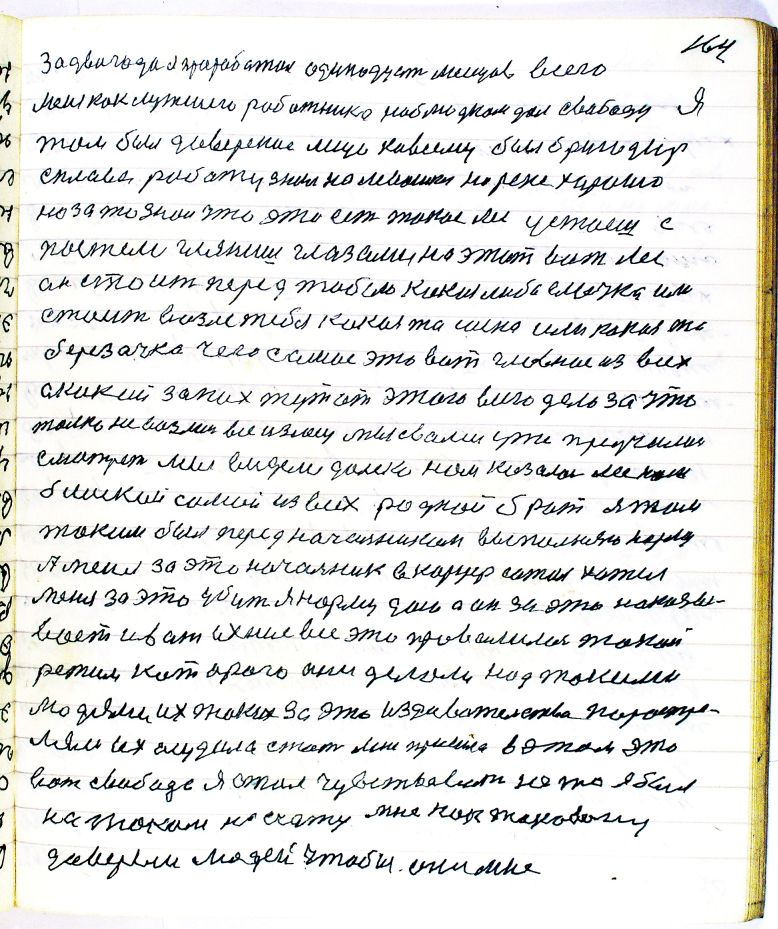 164
за два года я проработал одиннадцат месецов всего
меня как лутшего работника наблюдком дал свабоду Я
там был даверенае лицо навсему был бригадир
сплава работу знал на левашки на реке харашо
но за то знал что это ест такое лес устаеш с
постели гляниш глазами на этот вот лес
он стоит перед тобою какая либа елачка или
стоит возле тебя какая та сосна или какая та
березачка чего самае это вот главное из всех
за них тут от этого всего дела за что
только не возми все из лесу мы с вами уже
смотрет мы видели далеко нам казалас лес наш
близкой самой из всех родной брат я там
таким был перед начальникам выполнять норму
А меня за это начальник в карцер сажал хотел
меня за это убит я норму даю а он за это наказы-
вает и вот ихние все это провалился такой
режим каторого они делали над такими
людями их таких за это издавателства пострe-
ляли их осудила стат мне пришла в этом это
вот свабода Я стал чуствавать не то я был
на таком не скажу мне как таковому
даверили людей чтобы они мне